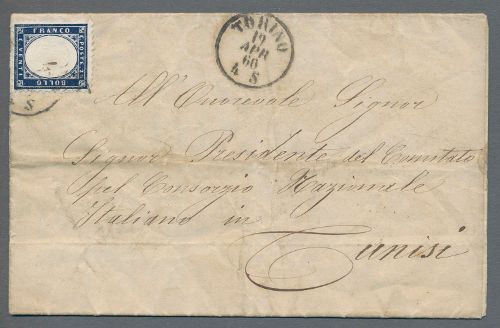 FRANCO
C. POSTE. 20
C. VENTI
BOLLO
S
TORINO
19
APR
66
4 S
All' Onorevole Signor
Signor Presidente del Comitato
pel Consorzio Nazionale
Italiano in
Tunisi